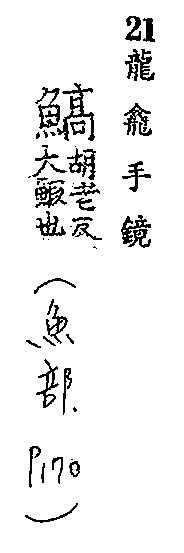 21龍龕手鏡
鰝胡老反大鰕也(魚部.P170)